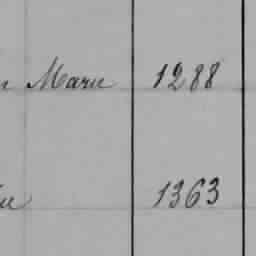 Marie 1288
1363